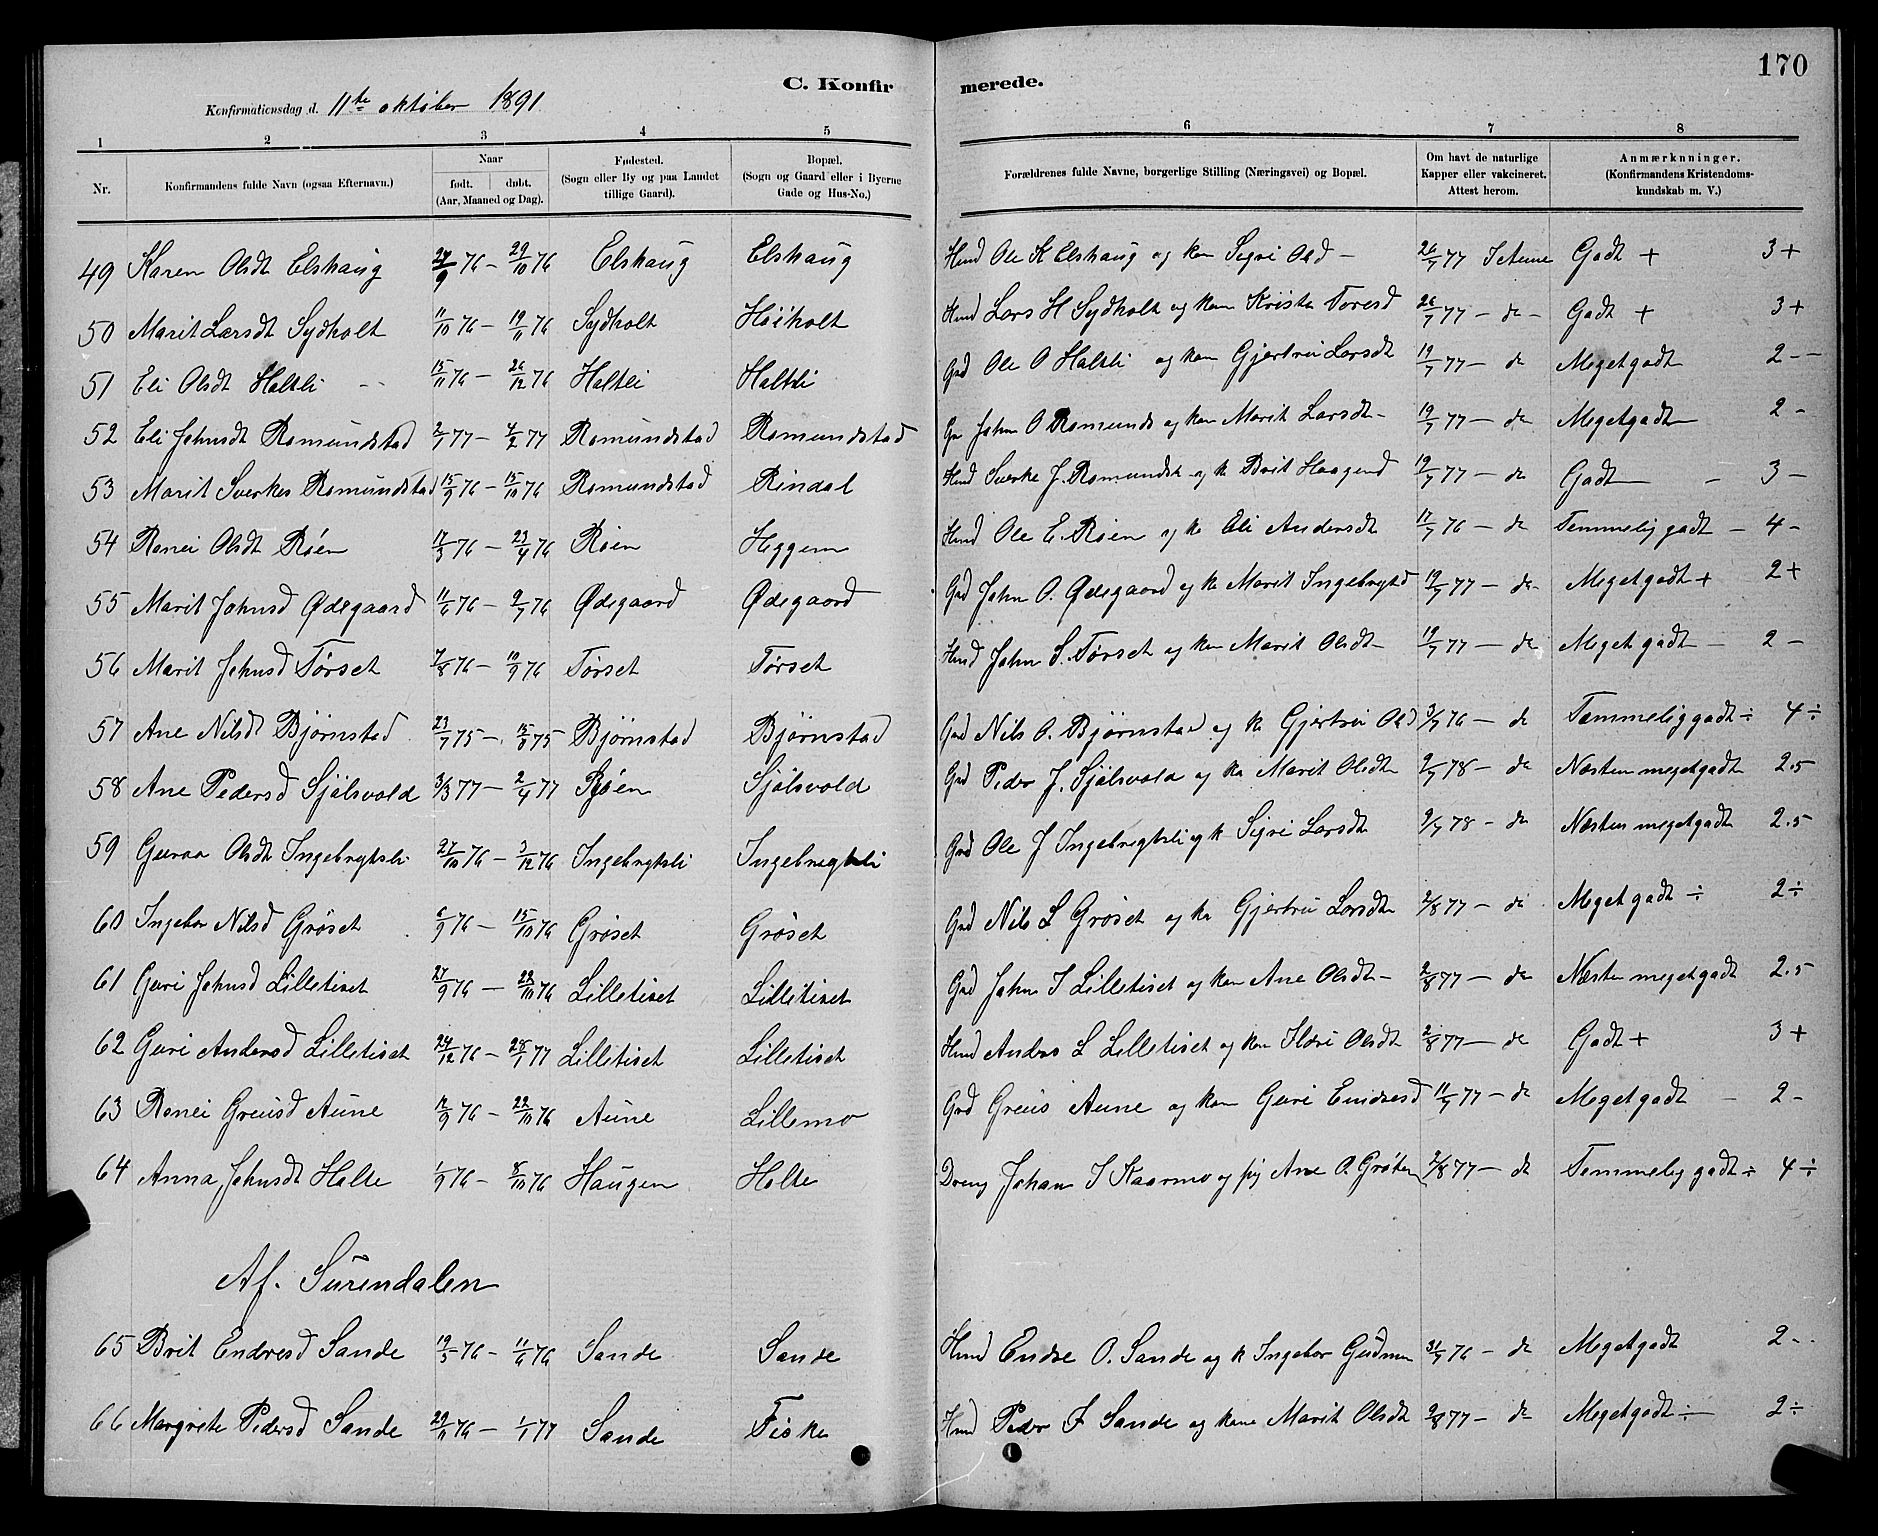 170
C. Konfirmerede.
Konfirmationsdag d. 11te oktober 1891.
1 2 3 4 5 6 7 8
Nr. Konfirmandens fulde Navn (ogsaa Efternavn.) Naar født. døbt. (Aar, Maaned og Dag). Fødested. (Sogn eller By og paa Landet tillige Gaard). Bopæl. (Sogn og Gaard eller i Byerne Gade og Hus-No.) Forældrenes fulde Navne, borgerlige Stilling (Næringsvei) og Bopæl. Om havt de naturlige Kapper eller vakcineret. Attest herom. Anmærknninger. (Konfirmandens Kristendomskundskab m. V.)
49 Karen Olsdt Elshaug 24/9 76 – 29/10 76 Elshaug Elshaug Hmd Ole K Elshaug og kon Sigri Olsd – 26/7 77 I Aune Godt + 3+
50 Marit Larsdt Sydholt 11/10 76 – 19/11 76 Sydholt Høiholt Hmd Lars H Sydholt og kon Kristi Toresd 26/7 77 – do – Godt + 3+
51 Eli Olsdt Haltli 15/11 76 – 26/12 76 Haltli Haltli Grd Ole O Haltli og kon Gjertru Larsdt 19/7 77 – do Megetgodt 2 –
52 Eli Johnsdt Romundstad 2/1 77 – 4/2 77 Romundstad Romundstad Gr John O Romunds og kon Marit Larsdt – 19/7 77 – do Megetgodt 2 –
53 Marit Sverkes Romundstad 15/9 76 – 15/10 76 Romundstad Rindal Hmd Sverke J. Romundst og k Brit Haagensd 19/7 77 – do Godt – 3 –
54 Ronei Olsdt Røen 17/3 76 – 23/4 76 Røen Heggem Hmd Ole E. Røen og ko Eli Andersdt 17/7 76 – do Temmelig godt – 4 –
55 Marit Johnsd Ødegaard 11/6 76 – 9/7 76 Ødegaard Ødegaard Grd John O. Ødegaard og ko Marit Ingebrigtsd 19/7 77 – do Megetgodt + 2+
56 Marit Johnsd Tørset 7/8 76 – 10/9 76 Tørset Tørset Hmd John S. Tørset og kon Marit Olsdt – 19/7 77 – do Meget godt – 2 –
57 Ane Nilsdt Bjørnstad 23/7 75 – 15/8 75 Bjørnstad Bjørnstad Grd Nils O. Bjørnstad og ko Gjertru Olsd 3/7 76 – do Temmeliggodt ÷ 4 ÷
58 Ane Pedersd Sjølsvold 3/3 77 – 2/4 77 Røen Sjølsvold Grd Peder J. Sjølsvold og ko Marit Olsdt 2/7 78 – do Næsten megetgodt 2.5
59 Guroa Olsdt Ingebrigtsli 27/10 76 – 3/12 76 Ingebrigtsli Ingebrigtsli Grd Ole J Ingebrigtsli og k Sigri Larsdt 2/7 78 – do Næsten megetgodt 2.5
60 Ingebor Nilsd Grøset 6/9 76 – 15/10 76 Grøset Grøset Grd Nils L Grøset og ko Gjertru Larsdt 2/8 77 – do Meget godt ÷ 2 ÷
61 Guri Johnsd Lilletiset 27/9 76 – 22/10 76 Lilletiset Lilletiset Grd John I Lilletiset og kon Ane Olsdt – 2/8 77 – do Næsten megetgodt 2.5
62 Guri Andersd Lilletiset 24/12 76 – 28/1 77 Lilletiset Lilletiset Hmd Anders L Lilletiset og kon Ildri Olsdt 2/8 77 – do Godt + 3+
63 Ronei Greusd Aune 12/9 76 – 22/10 76 Aune Lillemo Grd Greus Aune og kon Guri Endresd 11/7 77 – do Megetgodt – 2 –
64 Anna Johnsdt Holte 1/9 76 – 8/10 76 Haugen Holte Dreng Johan I Kaarmo og pig Ane O. Grøten 2/8 77 – do Temmelig godt ÷ 4 ÷
Af. Surendalen
65 Brit Endresd Sande 19/5 76 – 11/6 76 Sande Sande Hmd Endre O. Sande og k Ingebor Gudmu 31/7 76 – do Megetgodt 2 –
66 Margrete Pedersd Sande 29/11 76 – 1/1 77 Sande Fiske Hmd Peder J Sande og kone Marit Olsdt 2/8 77 – do Megetgodt ÷ 2 ÷